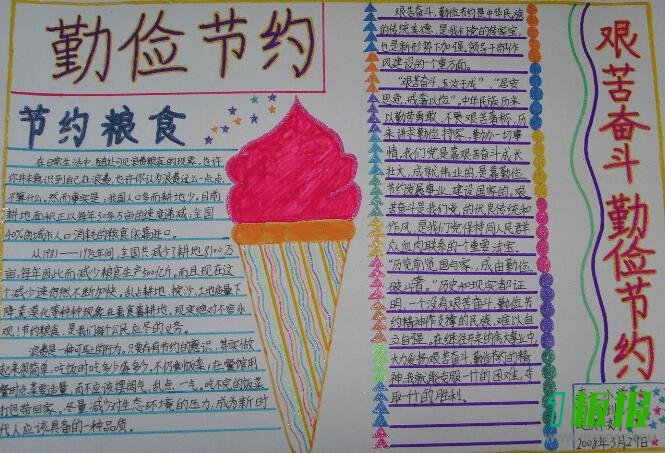 勤俭节约
节约粮食
在日常生活中,随处可见浪费粮食的现象。也许
你并未意识到自己在浪费,也许你认为浪费这么一点点
不算什么,然而事实是:我国人口多而耕地少,目前
耕地面积正以每年30多万亩的速度递减;全国
40%的城市人口消耗的粮食依靠进口。
从1981——1995年间,全国共减少了耕地8100万
亩,每年因此而减少粮食生产500亿斤。而且现在这
个减少速仍然不断加快。乱占耕地、挖沙、土地质量下
降荒漠化等种种现象在重复着耕地,现实绝对不容乐
观!节约粮食,是我们每个公民应尽的义务。
浪费是一种可耻的行为。只要存有节约的意识,其实做
起来很简单,吃饭时吃多少盛多少,不扔剩饭菜,在餐馆用
餐时点菜要适量,而不应该摆阔气,乱点一气。吃不完的饭菜
打包带回家。尽量减少对生态环境的压力,成为新时
代人应该具备的一种品质。
艰苦奋斗,勤俭节约是中华民族
的传统美德,是我们党的传家宝,
也是新形势下加强领导干部作
风建设的一个重方面。
“艰苦奋斗,玉汝于成”,“居安
思危,戒奢以俭”。中华民族历来
以勤劳勇敢、不畏艰苦著称,历
来讲求勤俭持家、勤办一切事
情。我们党是靠艰苦奋斗成长
壮大,成就伟业的,是靠勤俭
节约发展事业、建设国家的。艰
苦奋斗是我们党的优良传统和
作风,是我们党保持同人民群
众血肉联系的个重要法宝。
“历览前贤国与家,成由勤俭
破由奢。”历史和现实都证
明,一个没有艰苦奋斗、勤俭节
约精神作支撑的民族,难以自
立自强。在继往开来的伟大事业中
大力发扬艰苦奋斗、勤俭节约的精
神,我就能克服一个的困难,夺
取一个的胜利。
艰苦奋斗 勤俭节约
板报
3月29日